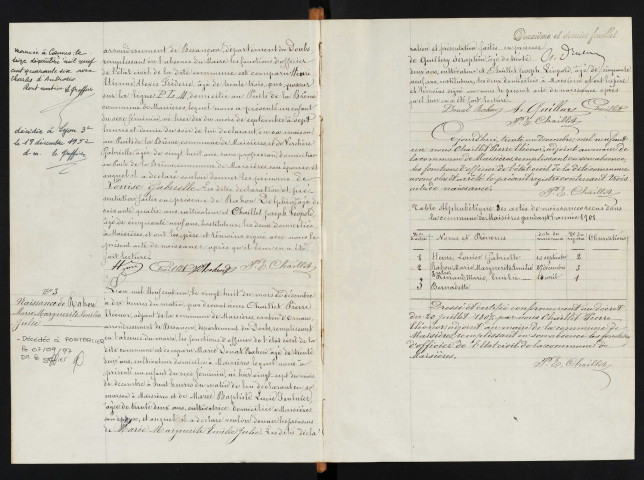 mariée à Cosnes le
seize décembre mil neuf
cent quarante six avec
Charles d'Ambrosio
dont mention le Greffier
décédée à Lyon 3e
le 18 décembre 1952
d.m. le greffier
arrondissement de Besançon, département du Doubs
remplissant en l'absence du Maire les fonctions d'officier
de l'état civil de la dite commune est comparu Henri
Etienne âgé de trente ans,
domicilié au Puits de la Brême
commune de Maisières, lequel nous a présenté un enfant
du sexe féminin, né hier dix du mois de septembre à sept
heures et demie du soir de lui déclarant en sa maison
au Puits de la Brême commune de Maisières et de
âgée de vingt huit ans sans profession domiciliée
au Puits de la Brême commune de Maisières son épouse, et
auquel il a déclaré vouloir donner les prénoms de
Louise Gabrielle. Les dites déclaration et pré-
sentation faites en présence de Rahon Delphin âgé de
soixante quatre ans, cultivateur et Chaillet Joseph Léopold,
âgé de cinquante neuf ans, instituteur, les deux domiciliés
à Maisières et ont les père et témoins signé avec nous le
présent acte de naissance après qu'il leur en a été
fait lecture.
P. E. Chaillet
No 3
Naissance de Rahon
Marie Marguerite Emilie
Julie
- DÉCÉDÉE À PONTARLIER
L'an mil neuf cent un, le vingt huit du mois de décembre
à dix heures du matin, par devant nous Chaillet Pierre
Etienne, adjoint de la commune de Maisières, canton d'Ornans,
arrondissement de Besançon, département du Doubs, remplissant
en l'absence du maire, les fonctions d'officier de l'état civil de la
dite commune est comparu Marie Donat Rahon âgé de trente
ans, cultivateur domicilié à Maisières lequel nous a
présenté un enfant du sexe féminin, né hier vingt sept du mois
de décembre à huit heures du matin de lui déclarant en sa
maison à Maisières et de Marie Baptiste Lucie
âgée de trente deux ans, cultivatrice domiciliée à Maisières
son épouse, et auquel il a déclaré vouloir donner les prénoms
de Marie Marguerite Emilie Julie. Les dites décla-
Deuxième et dernier feuillet
ration et présentation faites en présence
de Guillaz Séraphin âgé de trente
deux ans, cultivateur et Chaillet Joseph Léopold, âgé de cinquante
neuf ans, instituteur, les deux domiciliés à Maisières et ont les père
et témoins signé avec nous le présent acte de naissance après
qu'il leur en a été fait lecture.
Donat Rahon
Guillaz
P. E. Chaillet
Aujourd'hui trente un décembre, mil neuf cent
un, nous Chaillet Pierre Etienne, adjoint au maire de
la commune de Maisières, remplissant en son absence
les fonctions d'officier de l'état civil de la dite commune
avons clos et arrêté le présent registre contenant trois
actes de naissance.
P. E. Chaillet
Table Alphabétique des actes de naissances reçus dans
la commune de Maisières pendant l'année 1901
Noms et Prénoms
Observations
1 Henri Louise Gabrielle 10 septembre 2
2 Rahon Marie Marguerite Emilie Julie 27 décembre 3
3 16 avril 1
Bernadette
Dressé et certifié conformément au décret
du 20 juillet 1807, par nous Chaillet Pierre
Etienne, adjoint au maire de la commune de
Maisières, remplissant en son absence les fonctions
d'officier de l'état civil de la commune de
Maisières.
P. E. Chaillet